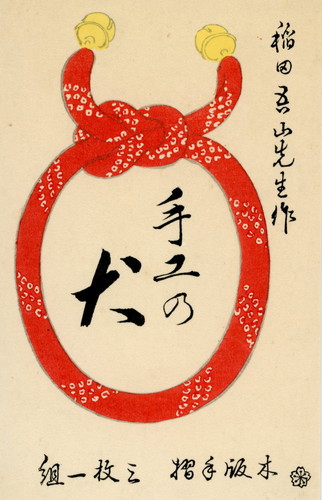 稲田吾山先生作
手工の
犬
木版手摺
三枚一組